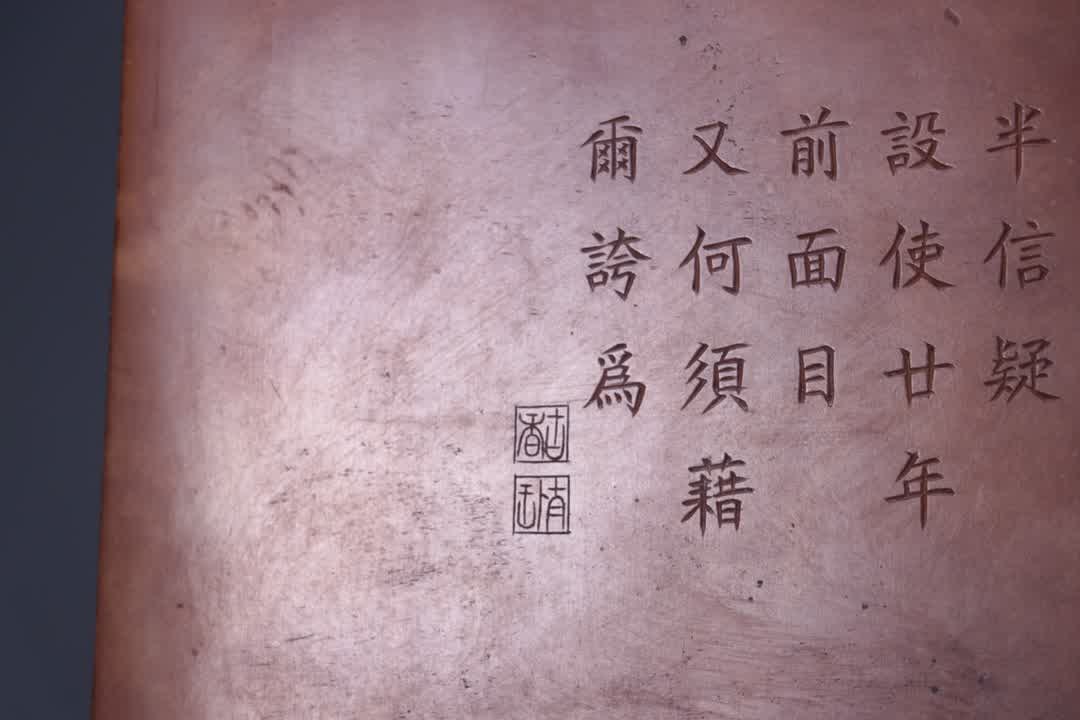 半信疑
設使廿年
前面目
又何須藉
爾誇爲
古香